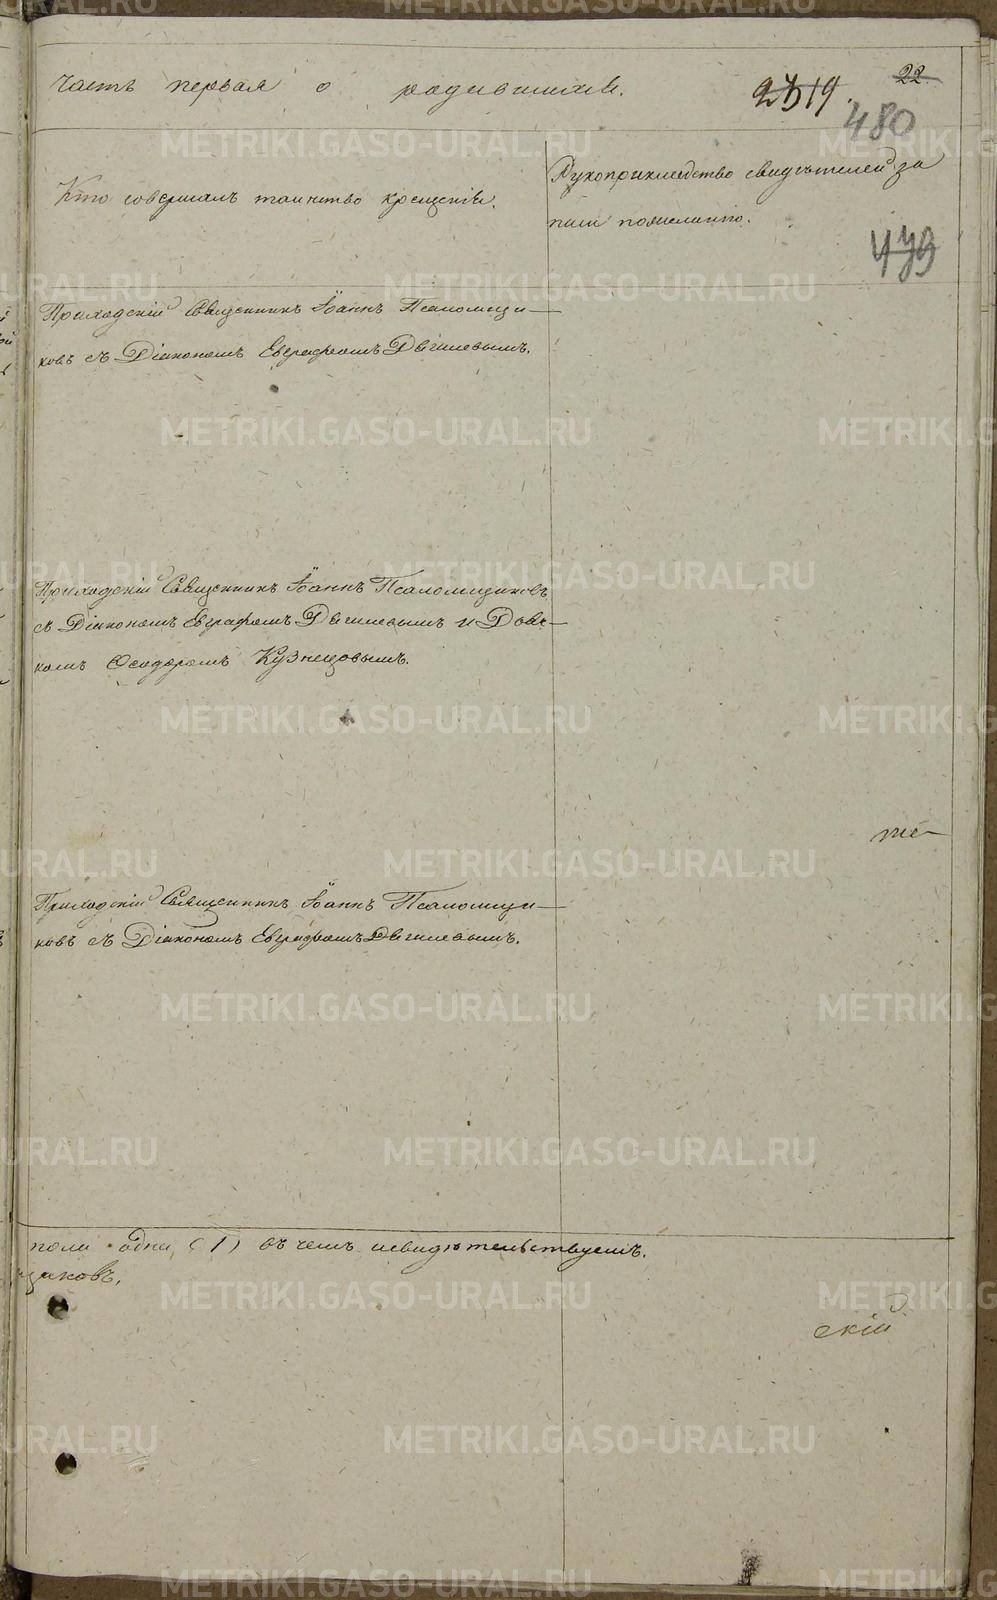 часть первая о родившихся.
22.
2519.
480
Кто совершалъ таинство крещенія.
Рукоприкладство свидѣтелей за
писи по желанію.
479
Приходскій Священникъ Іоаннъ Псаломщи-
ковъ съ Діакономъ Евграфомъ Двинаевымъ.
Приходскій Священникъ Іоаннъ Псаломщиковъ
съ Діакономъ Евграфомъ и Дьяч-
комъ Ѳеодоромъ Кузнецовымъ.
же-
Приходскій Священникъ Іоаннъ Псаломщи-
ковъ съ Діакономъ Евграфомъ
пола одна (1) въ чемъ и свидѣтельствуемъ.
щиковъ.
скій
METRIKI.GASO-URAL.RU